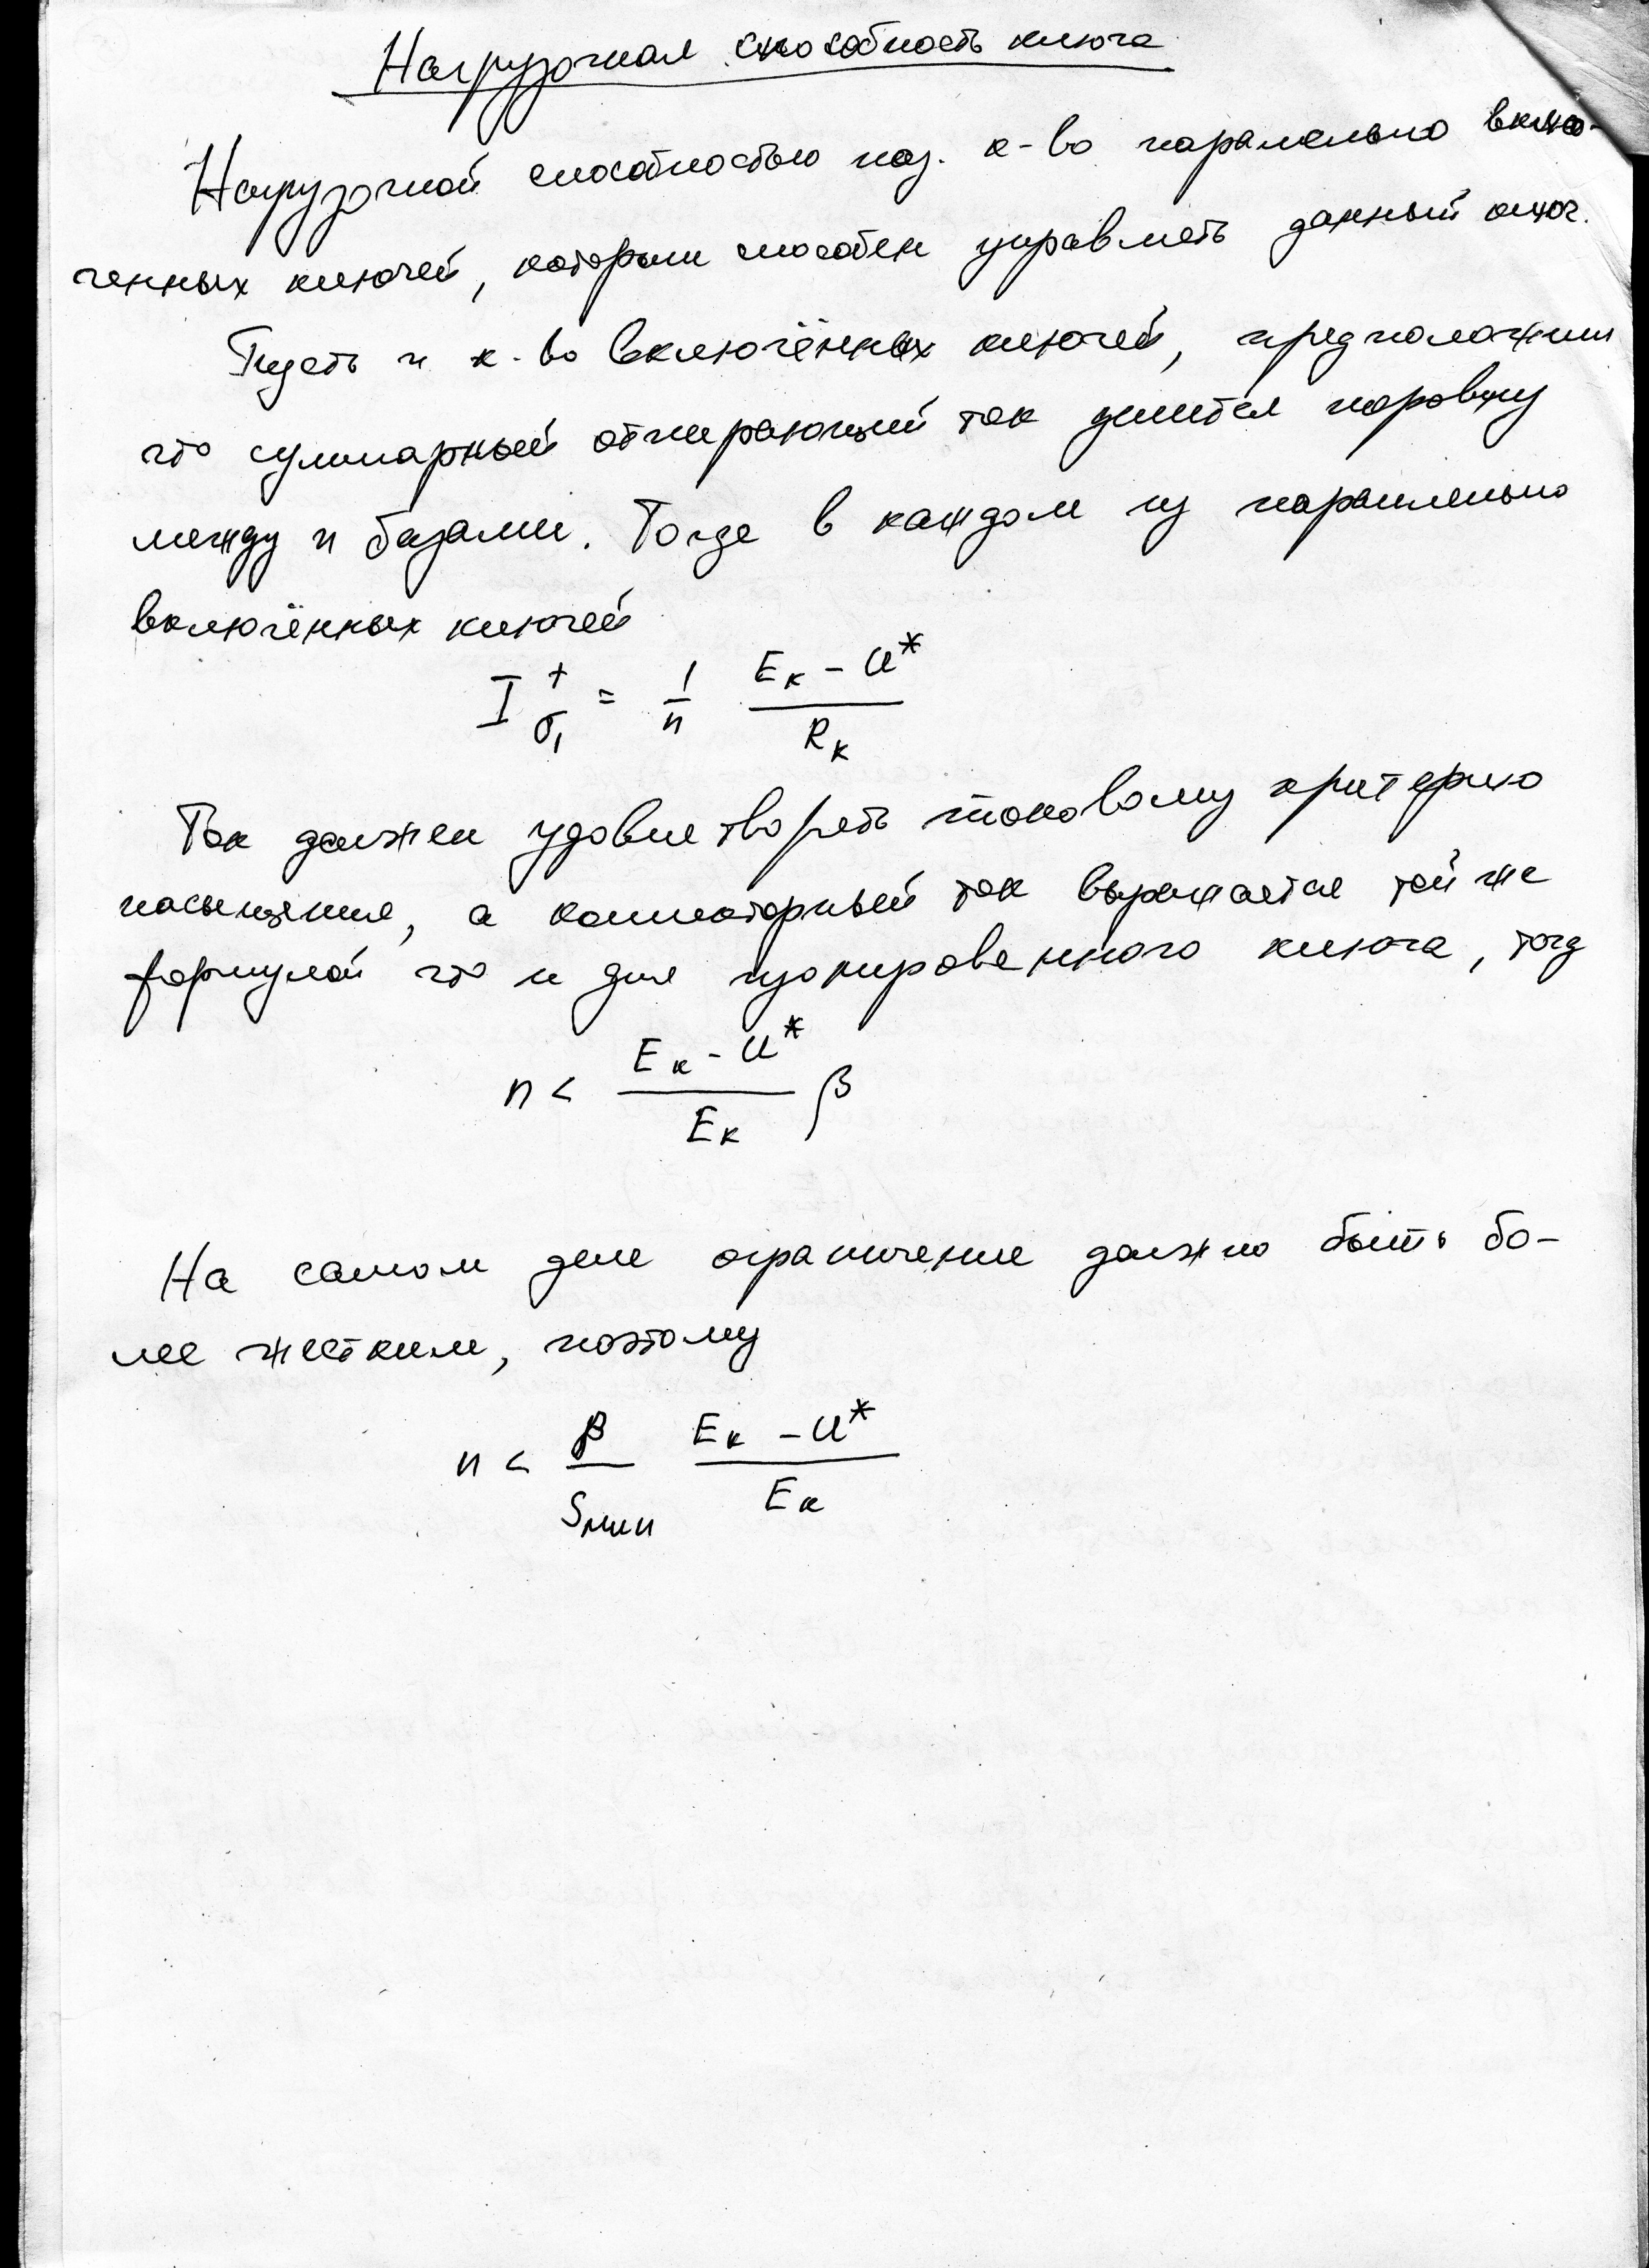 Нагрузочная способность ключа
Нагрузочной способностью наз. к-во паралельно вклю-
ченных ключей, которым способен управлять данный ключ.
Пусть n к-во включённых ключей, предположим
что суммарный отпирающий ток делится поровну
между n базами. Тогда в каждом из параллельно
включённых ключей
I⁺б₁ = 1/n (Eк - U*)/Rк
Ток должен удовлетворять токовому критерию
насыщения, а коллекторный ток выражается той же
формулой что и для изолированного ключа, тогд
n < (Eк - U*)/Eк β
На самом деле ограничение должно быть бо-
лее жестким, поэтому
n < β/Sмин (Eк - U*)/Eк